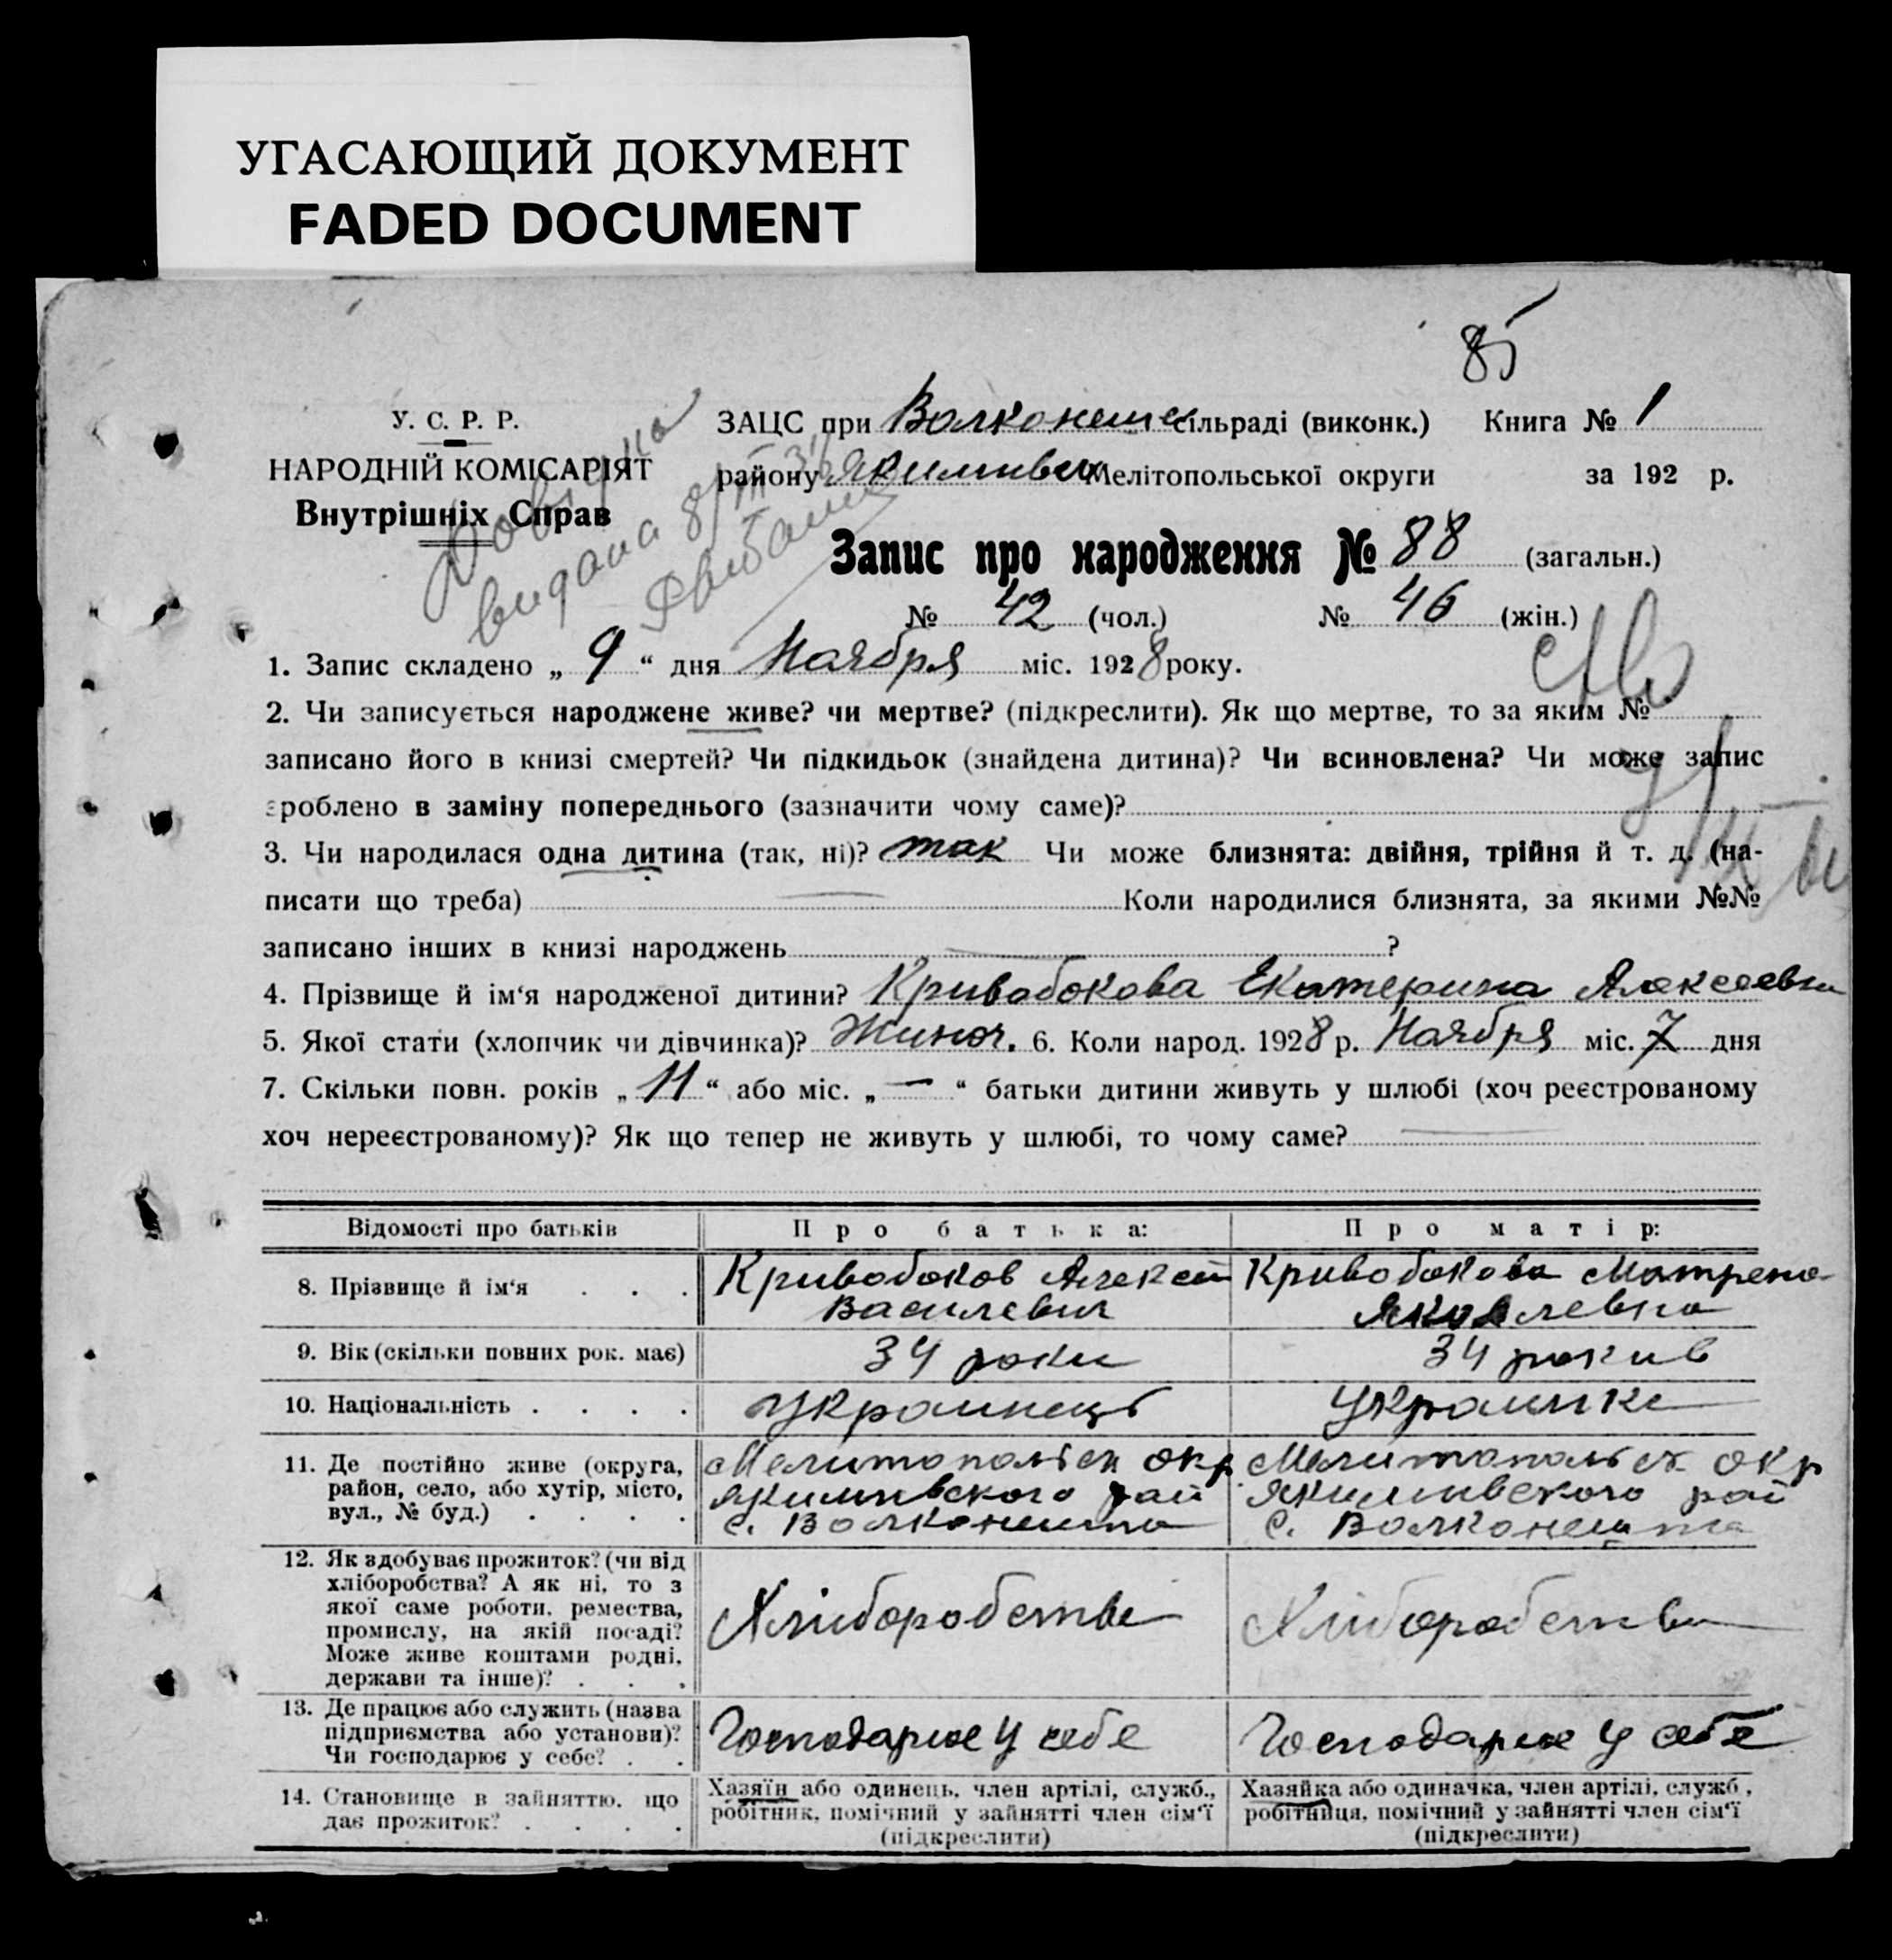 УГАСАЮЩИЙ ДОКУМЕНТ
FADED DOCUMENT
85
У. С. Р. Р.
НАРОДНІЙ КОМІСАРІЯТ
Внутрішніх Справ
ЗАЦС при Волконеше сільраді (виконк.) Книга № 1
району Мелітопольської округи за 192 р.
видана 8/III 3
Запис про народження № 88 (загальн.)
№ 42 (чол.) № 46 (жін.)
1. Запис складено „ 9 “ дня Ноября міс. 1928 року.
2. Чи записується народжене живе? чи мертве? (підкреслити). Як що мертве, то за яким №
записано його в книзі смертей? Чи підкидьок (знайдена дитина)? Чи всиновлена? Чи може запис
зроблено в заміну попереднього (зазначити чому саме)?
3. Чи народилася одна дитина (так, ні)? так Чи може близнята: двійня, трійня й т. д. (на-
писати що треба) — Коли народилися близнята, за якими №№
записано інших в книзі народжень — ?
4. Прізвище й ім‘я народженої дитини? Кривобокова Екатерина Алексеевна
5. Якої стати (хлопчик чи дівчинка)? Жиноч. 6. Коли народ. 1928 р. Ноября міс. 7 дня
7. Скільки повн. років „ 11 “ або міс. „ — “ батьки дитини живуть у шлюбі (хоч реєстрованому
хоч нереєстрованому)? Як що тепер не живуть у шлюбі, то чому саме? —
Відомості про батьків Про батька: Про матір:
8. Прізвище й ім‘я . . . Кривобоков Алексей Кривобокова Матрена
Василевич Яковлевна
9. Вік (скільки повних рок. має) 34 роки 34 рокив
10. Національність . . . . Украинець Украинка
11. Де постійно живе (округа, Мелитопольск окр Мелитопольск окр
район, село, або хутір, місто, Якимивского рай Якимивского рай
вул., № буд.) . . . . с. Волконешта с. Волконешта
12. Як здобуває прожиток? (чи від
хліборобства? А як ні, то з
якої саме роботи, ремества, Хлиборобстви Хлиборобстви
промислу, на якій посаді?
Може живе коштами родні,
держави та інше)? . . .
13. Де працює або служить (назва
підприємства або установи)? Господарює у себе Господарює у себе
Чи господарює у себе? . .
14. Становище в зайняттю, що Хазяїн або одинець, член артілі, служб., Хазяйка або одиначка, член артілі, служб.,
дає прожиток? . . . . робітник, помічний у зайнятті член сім‘ї робітниця, помічний у зайнятті член сім‘ї
(підкреслити) (підкреслити)